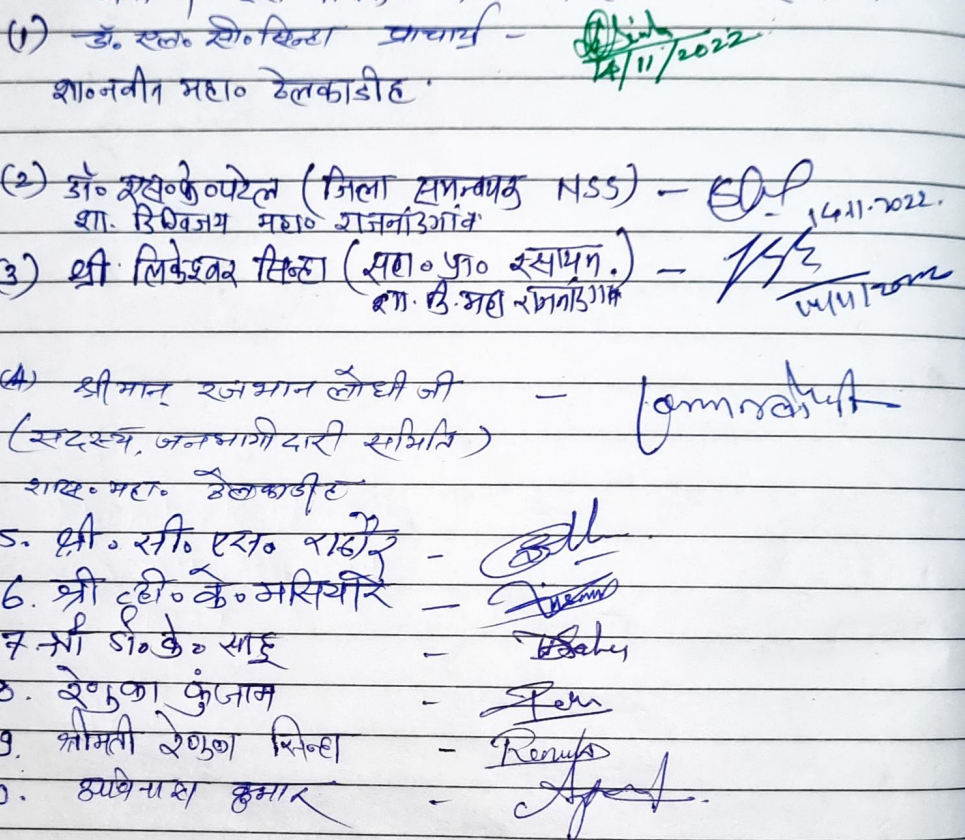 (1) डॉ. एल. सी. सिन्हा प्राचार्य -
14/11/2022
शा०नवीन महा० ठेलकाडीह
(2) डॉ० एस०के०पटेल (जिला समन्वयक NSS) - 14.11.2022.
शा. दिग्विजय महा० राजनांदगांव
3) श्री लिकेश्वर सिन्हा (सहा० प्रा० रसायन.) -
शा. दि. महा राजनांदगांव
(4) श्रीमान् रजभान लोधी जी -
(सदस्य, जनभागीदारी समिति)
शास. महा. ठेलकाडीह
5. श्री. सी. एस. राठौर -
6. श्री व्ही. के. मसियारे -
7 श्री डी. के. साहू - Sahu
8. रेणुका कुंजाम -
9. श्रीमती रेणुका सिन्हा - Renuka
अविनाश कुमार -